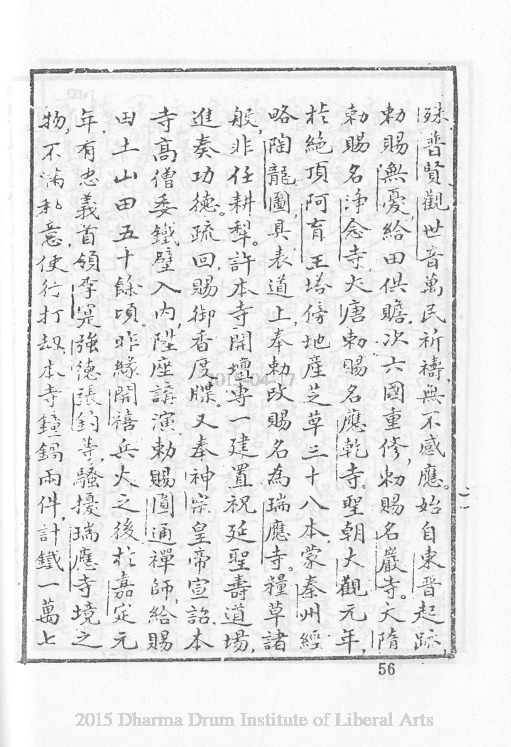 殊、普賢、觀世音、萬民祈禱、無不感應。始自東晉起跡、
勅賜無憂、給田供贍、次六國重修、勅賜名嚴寺。大隋
勅賜名淨念寺。大唐勅賜名應乾寺。聖朝大觀元年、
於絕頂阿育王塔傍地產芝草三十八本、蒙秦州經
略陶龍圖具表道上、奉勅改賜名為瑞應寺。糧草諸
般、非任耕犁。許本寺開壇、專一建置祝延聖壽道場、
進奏功德。疏回賜御香度牒。又奉神宗皇帝宣詔、本
寺高僧委鐵壁入內陞座講演、勅賜圓通禪師、給賜
田土山田五十餘頃、昨緣開禧兵火之後、於嘉定元
年、有忠義首領李寔、強德、張鈞等、騷擾瑞應寺境之
物、不滿私意、使行打劫、本寺鐘鍋兩件、計鐵一萬七
56
2015 Dharma Drum Institute of Liberal Arts